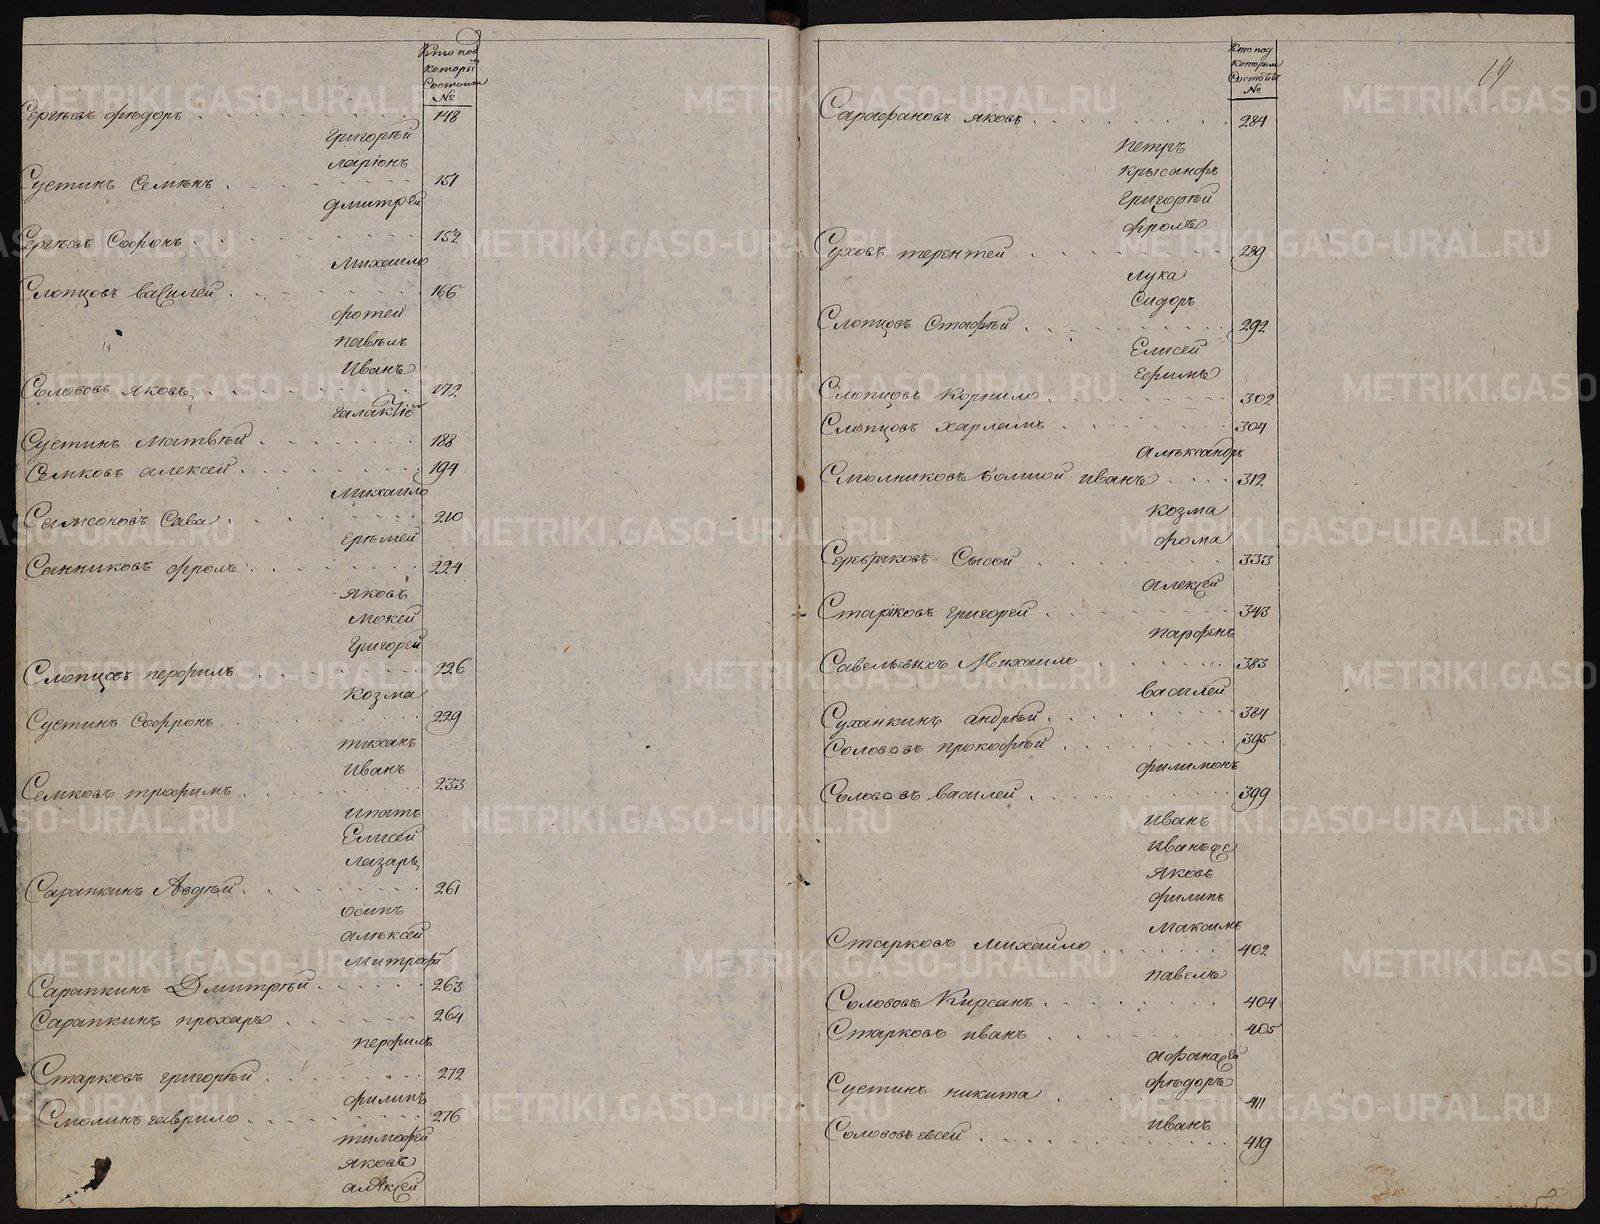 Кто под
которы
Состоит
№
Сергѣевъ фѣдоръ 148
Григорѣй
ларіонъ
Сустинъ Семѣнъ 151
дмитрѣй
Сергѣевъ Софонъ 152
Михаило
Слопцовъ василей 166
фотей
павѣлъ
Иванъ
Солововъ яковъ 172
галактіо
Сустинъ Матвѣй 188
Семковъ алексей 194
Михаило
Самсоновъ Сава 210
Ерѣмей
Санниковъ фролъ 224
яковъ
Мокей
Григорей
Слопцовъ перфилъ 226
Козма
Сустинъ Софронъ 229
тиханъ
Иванъ
Семковъ трофимъ 233
Ипатъ
Елисей
лазарь
Сарапкинъ Авдѣй 261
осипъ
алѣксей
митрофа
Сарапкинъ Дмитрѣй 263
Сарапкинъ прохаръ 264
перфилъ
Старковъ григорѣй 272
филипъ
Смолинъ гаврило 276
тимофей
яковъ
алѣксей
19
Кто под
которым
Состоит
№
Сарафановъ яковъ 284
Петръ
Крысанфъ
Григорѣй
фролъ
Суховъ терентей 289
лука
Сидоръ
Слопцовъ Стафѣй 292
Елисей
Ефимъ
Слопцовъ Корнило 302
Слопцовъ харламъ 304
Алѣксандръ
Смолниковъ болшой иванъ 312
козма
фома
Серебряковъ Сысой 333
алексей
Стариковъ григорей 343
парфенъ
Савельевыхъ Михаило 383
василей
Суханкинъ андрѣй 384
Солововъ прокофѣй 395
филимонъ
Солововъ василей 399
Иванъ
Иванъ же
яковъ
филипъ
Максимъ
Старковъ михайло 402
павелъ
Солововъ Кирсанъ 404
Старковъ иванъ 405
афанасей
фѣдоръ
Сустинъ никита 411
иванъ
Солововъ евсей 419